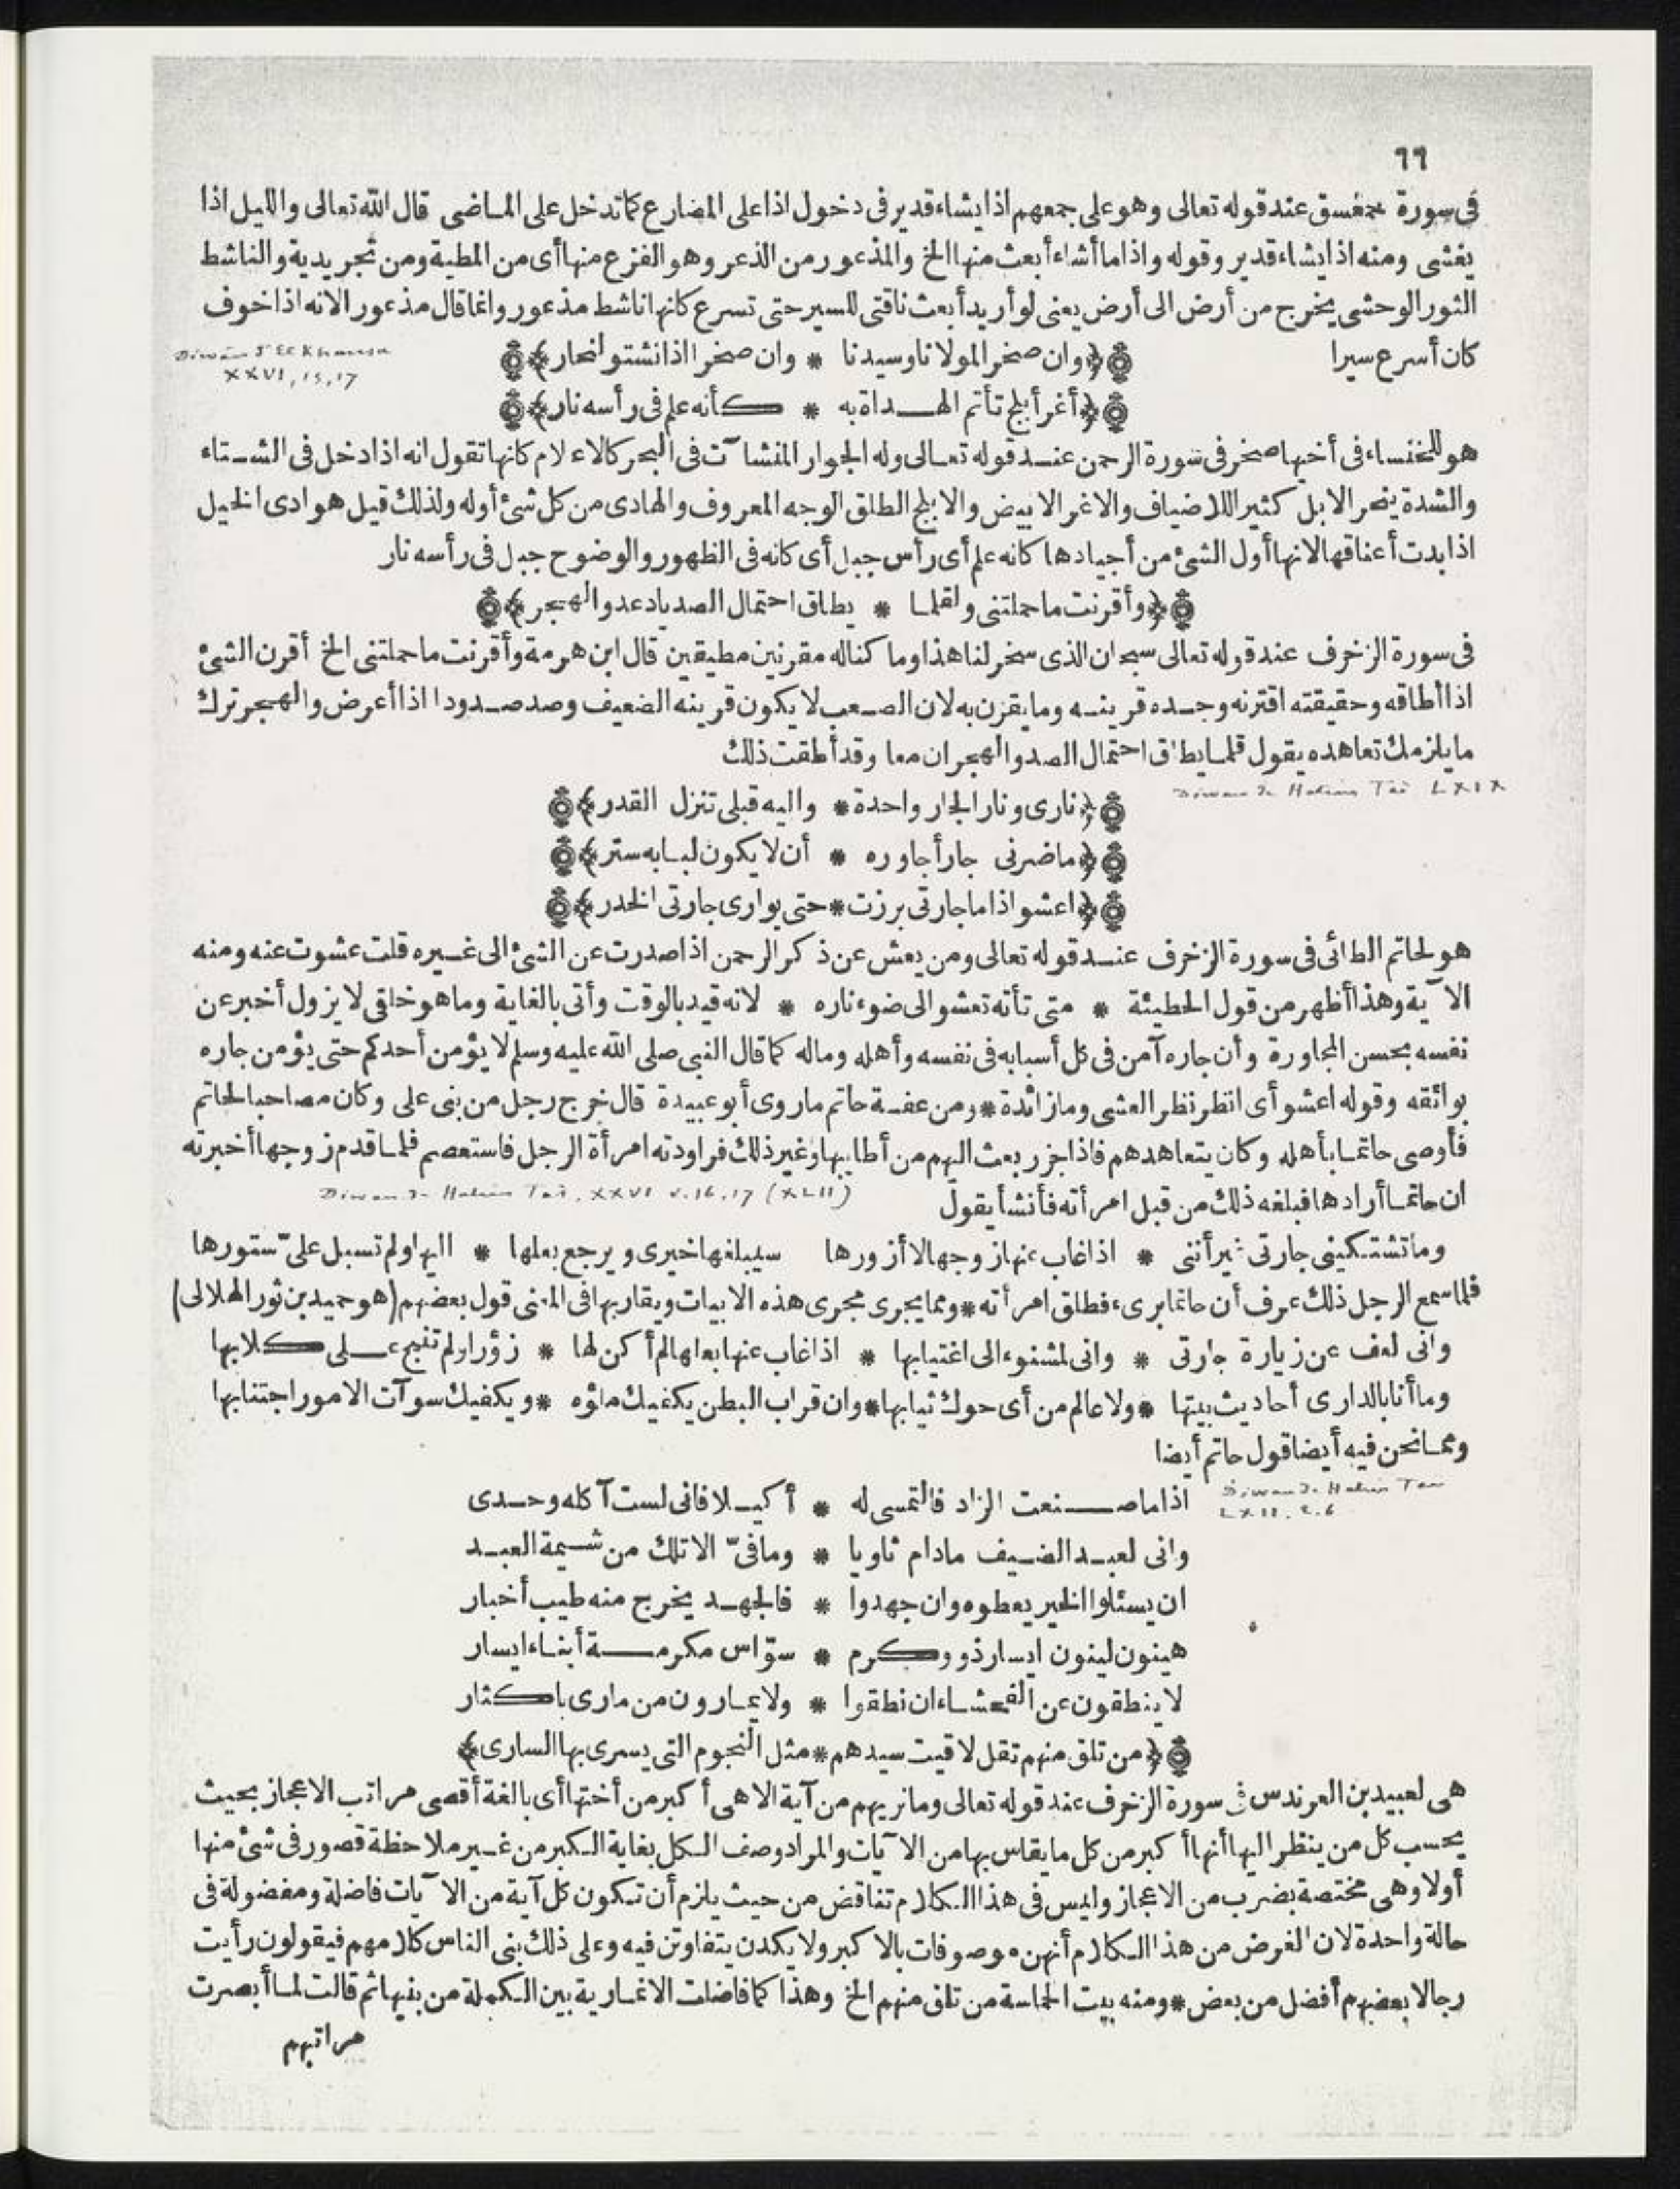 ٦٦
فى سورة حمعسق عند قوله تعالى وهو على جمعهم اذا يشاء قدير فى دخول اذا على المضارع كما تدخل على الماضى قال الله تعالى والليل اذا
يغشى ومنه اذا يشاء قدير وقوله واذا ما أشاء أبعث منها الخ والمذعور من الذعر وهو الفزع منها أى من المطية ومن تجريدية والناشط
الثور الوحشى يخرج من أرض الى أرض يعنى لو أريد أبعث ناقتى للسير حتى تسرع كانها ناشط مذعور وانما قال مذعور الانه اذا خوف
كان أسرع سيرا ﴿وان صخرا لمولانا وسيدنا * وان صخرا اذا نشتو لنحار﴾
Diwan d'El Khansa
XXVI, 15, 17
﴿أغر أبلج تأتم الهداة به * كأنه علم فى رأسه نار﴾
هو للخنساء فى أخيها صخر فى سورة الرحمن عند قوله تعالى وله الجوار المنشآت فى البحر كالاعلام كانها تقول انه اذا دخل فى الشتاء
والشدة ينحر الابل كثير اللاضياف والاغر الابيض والابلج الطلق الوجه المعروف والهادى من كل شئ أوله ولذلك قيل هوادى الخيل
اذا بدت أعناقها لانها أول الشئ من أجيادها كانه علم أى رأس جبل أى كانه فى الظهور والوضوح جبل فى رأسه نار
﴿وأقرنت ما حملتنى ولقلما * يطاق احتمال الصد يا دعد والهجر﴾
فى سورة الزخرف عند قوله تعالى سبحان الذى سخر لنا هذا وما كنا له مقرنين مطيقين قال ابن هرمة وأقرنت ما حملتنى الخ أقرن الشئ
اذا أطاقه وحقيقته اقترنه وجده قرينه وما يقرن به لان الصعب لا يكون قرينه الضعيف وصد صدودا اذا أعرض والهجر ترك
ما يلزمك تعاهده يقول قلما يطاق احتمال الصد والهجران معا وقد أطقت ذلك
Diwan de Hatim Tai LXIX
﴿نارى ونار الجار واحدة * واليه قبلى تنزل القدر﴾
﴿ما ضرنى جار أجاوره * أن لا يكون لبابه ستر﴾
﴿اعشو اذا ما جارتى برزت * حتى يوارى جارتى الخدر﴾
هو لحاتم الطائى فى سورة الزخرف عند قوله تعالى ومن يعش عن ذكر الرحمن اذا صدرت عن الشئ الى غيره قلت عشوت عنه ومنه
الآية وهذا أظهر من قول الحطيئة * متى تأته تعشو الى ضوء ناره * لانه قيد بالوقت وأتى بالغاية وما هو خلقى لا يزول أخبر عن
نفسه بحسن المجاورة وأن جاره آمن فى كل أسبابه فى نفسه وأهله وماله كما قال النبى صلى الله عليه وسلم لا يؤمن أحدكم حتى يؤمن جاره
بوائقه وقوله اعشو أى انظر نظر العشى وما زائدة * ومن عفة حاتم ما روى أبو عبيدة قال خرج رجل من بنى على وكان مصاحبا لحاتم
فأوصى حاتما بأهله وكان يتعاهدهم فاذا جزر بعث اليهم من أطايبها وغير ذلك فراودته امرأة الرجل فاستعصم فلما قدم زوجها أخبرته
ان حاتما أرادها فبلغه ذلك من قبل امرأته فأنشأ يقول
Diwan de Hatim Tai, XXVI v. 16, 17 (XLII)
وما تشتكينى جارتى غير أننى * اذا غاب عنها زوجها لا أزورها سيبلغها خيرى ويرجع بعلها * اليها ولم تسبل علىّ ستورها
فلما سمع الرجل ذلك عرف أن حاتما برىء فطلق امرأته * ومما يجرى مجرى هذه الابيات ويقاربها فى المعنى قول بعضهم (هو حميد بن ثور الهلالى)
وانى لعف عن زيارة جارتى * وانى لمشنوء الى اغتيابها * اذا غاب عنها بعلها لم أكن لها * زؤرا ولم تنبح على كلابها
وما أنا بالدارى أحاديث بيتها * ولا عالم من أى حوك ثيابها * وان قراب البطن يكفيك ملؤه * ويكفيك سوآت الامور اجتنابها
ومما نحن فيه أيضا قول حاتم أيضا
Diwan de Hatim Tai
LXII, 2, 6
اذا ما صنعت الزاد فالتمسى له * أكيلا فانى لست آكله وحدى
وانى لعبد الضيف مادام ثاويا * وما فىّ الا تلك من شيمة العبد
ان يسئلوا الخير يعطوه وان جهدوا * فالجهد يخرج منه طيب أخبار
هينون لينون ايسار ذوو كرم * سوّاس مكرمة أبناء ايسار
لا ينطقون عن الفحشاء ان نطقوا * ولا يمارون من مارى باكثار
﴿من تلق منهم تقل لاقيت سيدهم * مثل النجوم التى يسرى بها السارى﴾
هى لعبيد بن العرندس فى سورة الزخرف عند قوله تعالى وما نريهم من آية الا هى أكبر من أختها أى بالغة أقصى مراتب الاعجاز بحيث
يحسب كل من ينظر اليها أنها أكبر من كل ما يقاس بها من الآيات والمراد وصف الكل بغاية الكبر من غير ملاحظة قصور فى شئ منها
أولا وهى مختصة بضرب من الاعجاز وليس فى هذا الكلام تناقض من حيث يلزم أن تكون كل آية من الآيات فاضلة ومفضولة فى
حالة واحدة لان الغرض من هذا الكلام أنهن موصوفات بالاكبر ولا يكدن يتفاوتن فيه وعلى ذلك بنى الناس كلامهم فيقولون رأيت
رجالا بعضهم أفضل من بعض * ومنه بيت الحماسة من تلق منهم الخ وهذا كما فاضلت الانمارية بين الكملة من بنيها ثم قالت لما أبصرت
مراتبهم